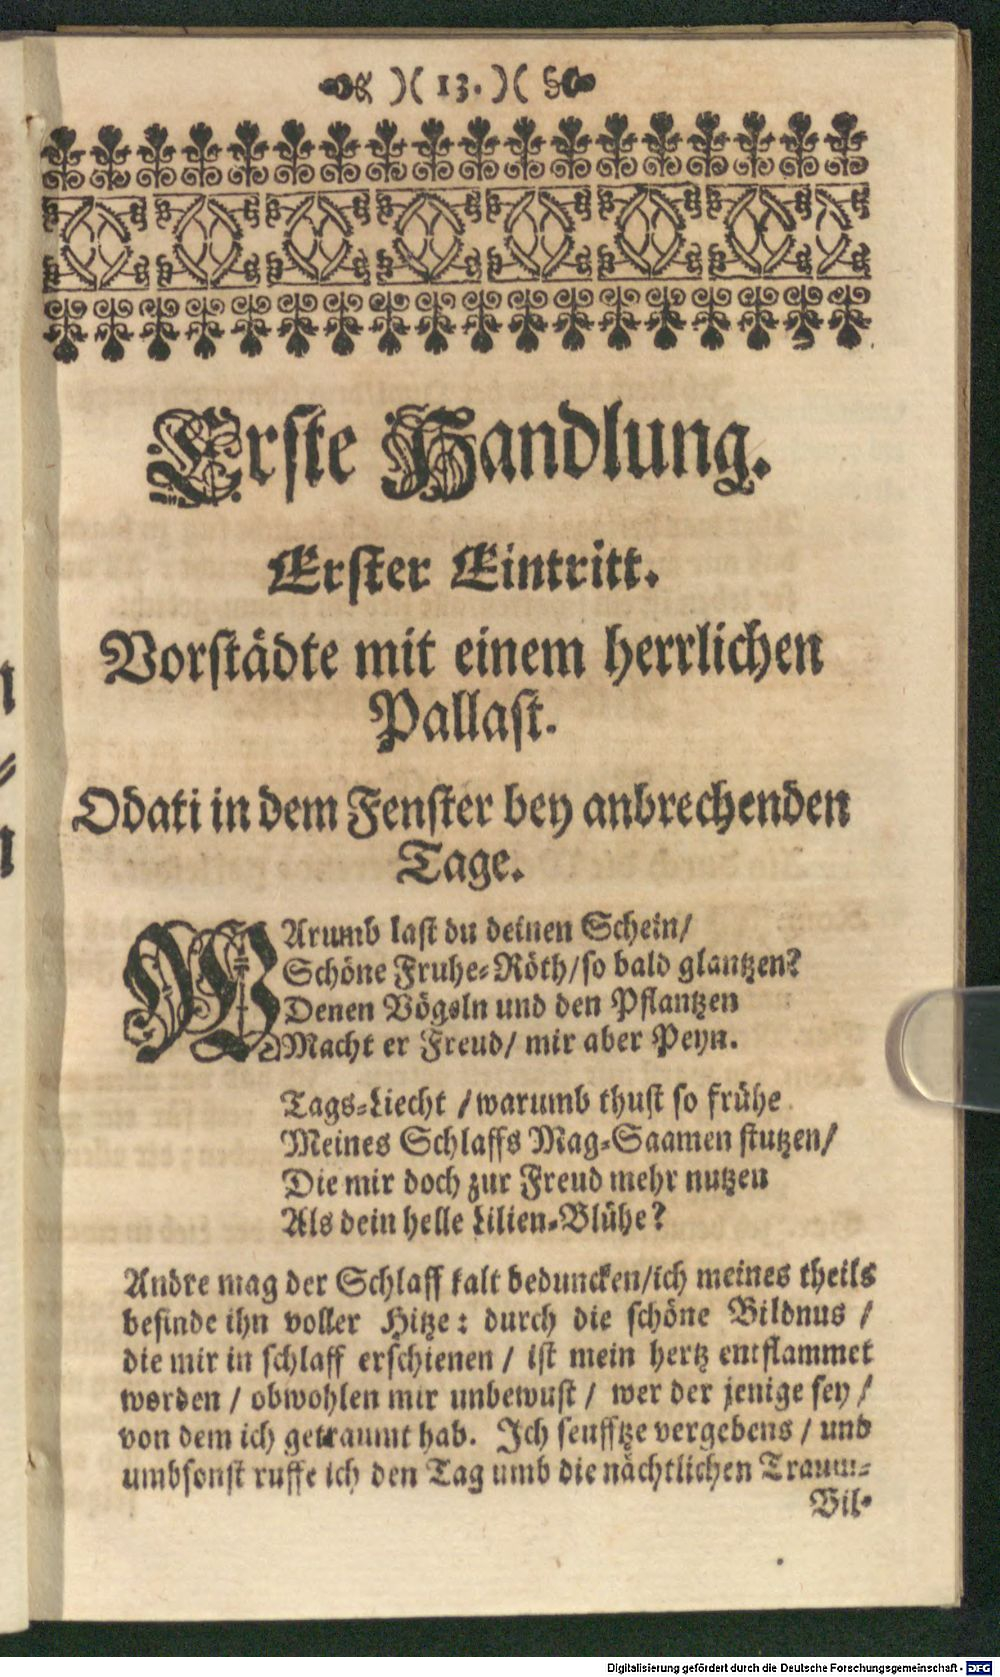 )( 13. )(
Erste Handlung.
Erster Eintritt.
Vorstädte mit einem herrlichen
Pallast.
Odati in dem Fenster bey anbrechenden
Tage.
WArumb last du deinen Schein/
Schöne Fruhe-Röth/so bald glantzen?
Denen Vögeln und den Pflantzen
Macht er Freud/ mir aber Peyn.
Tags-Liecht /warumb thust so frühe
Meines Schlaffs Mag-Saamen stutzen/
Die mir doch zur Freud mehr nutzen
Als dein helle Lilien-Blühe?
Andre mag der Schlaff kalt beduncken/ich meines theils
befinde ihn voller Hitze: durch die schöne Bildnus /
die mir in schlaff erschienen / ist mein hertz entflammet
worden / obwohlen mir unbewust / wer der jenige sey /
von dem ich getraumt hab. Ich seufftze vergebens / und
umbsonst ruffe ich den Tag umb die nächtlichen Traum-
Bil-
Digitalisierung gefördert durch die Deutsche Forschungsgemeinschaft - DFG